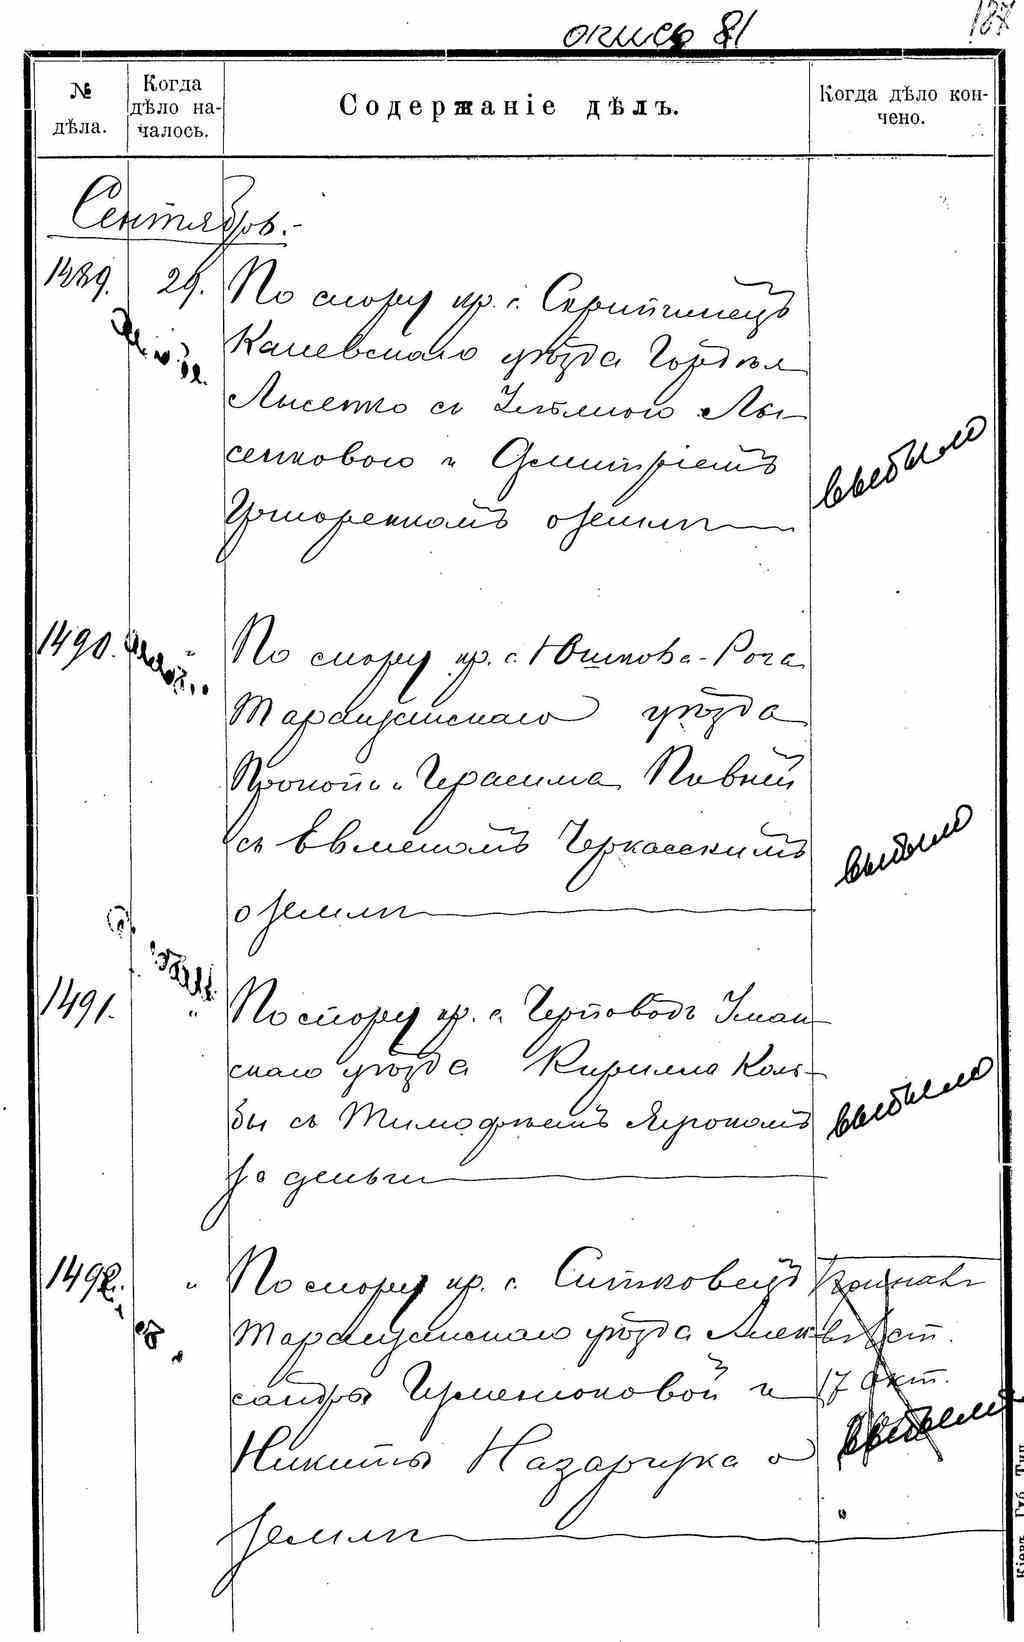 опись 81
187
№ дѣла.
Когда дѣло на-
чалось.
Содержаніе дѣлъ.
Когда дѣло кон-
чено.
Сентябрь.-
1489. 29. По спору кр. с. Скрипчинецъ
Каневскаго уѣзда Гордѣя
Лысенко съ Ульяною Лы-
сенковою и Дмитріемъ
о землѣ
выбыло
1490. " По спору кр. с. Юшкова-Рога
Таращанскаго уѣзда
Прокопія и Герасима Пивней
съ Евменомъ Черкасскимъ
о землѣ
выбыло
1491. " По спору кр. с. Черповодъ Уман-
скаго уѣзда Кирилла Коль-
бы съ Тимофѣемъ
за деньги
выбыло
1492. " По спору кр. с. Ситковецъ
Таращанскаго уѣзда Алек-
сандры и
Никиты Назарчука о
землѣ
17 Окт.
выбыло
"
Кіевъ, Губ. Тип.